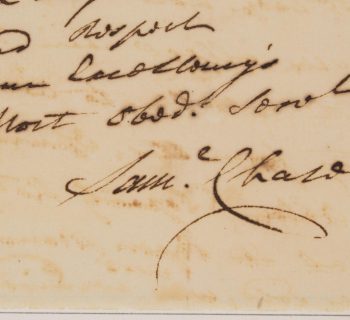 Respect
Excellency's
Most Obedt. Servt
Saml. Chase